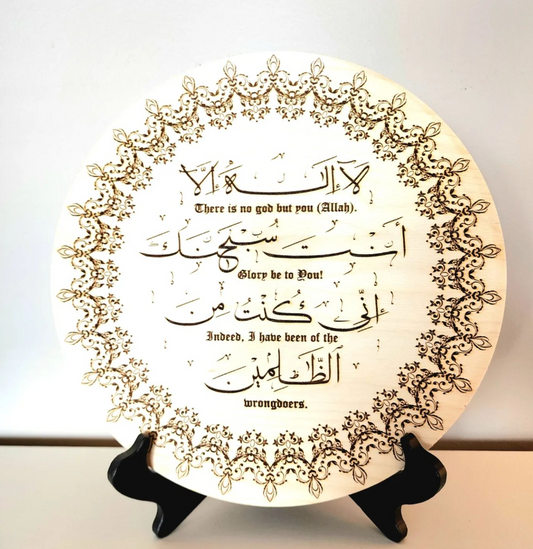 لَآ إِلَٰهَ إِلَّا
There is no god but you (Allah).
أَنْتَ سُبْحَٰنَكَ
Glory be to You!
إِنِّي كُنْتُ مِنَ
Indeed, I have been of the
الظَّالِمِينَ
wrongdoers.